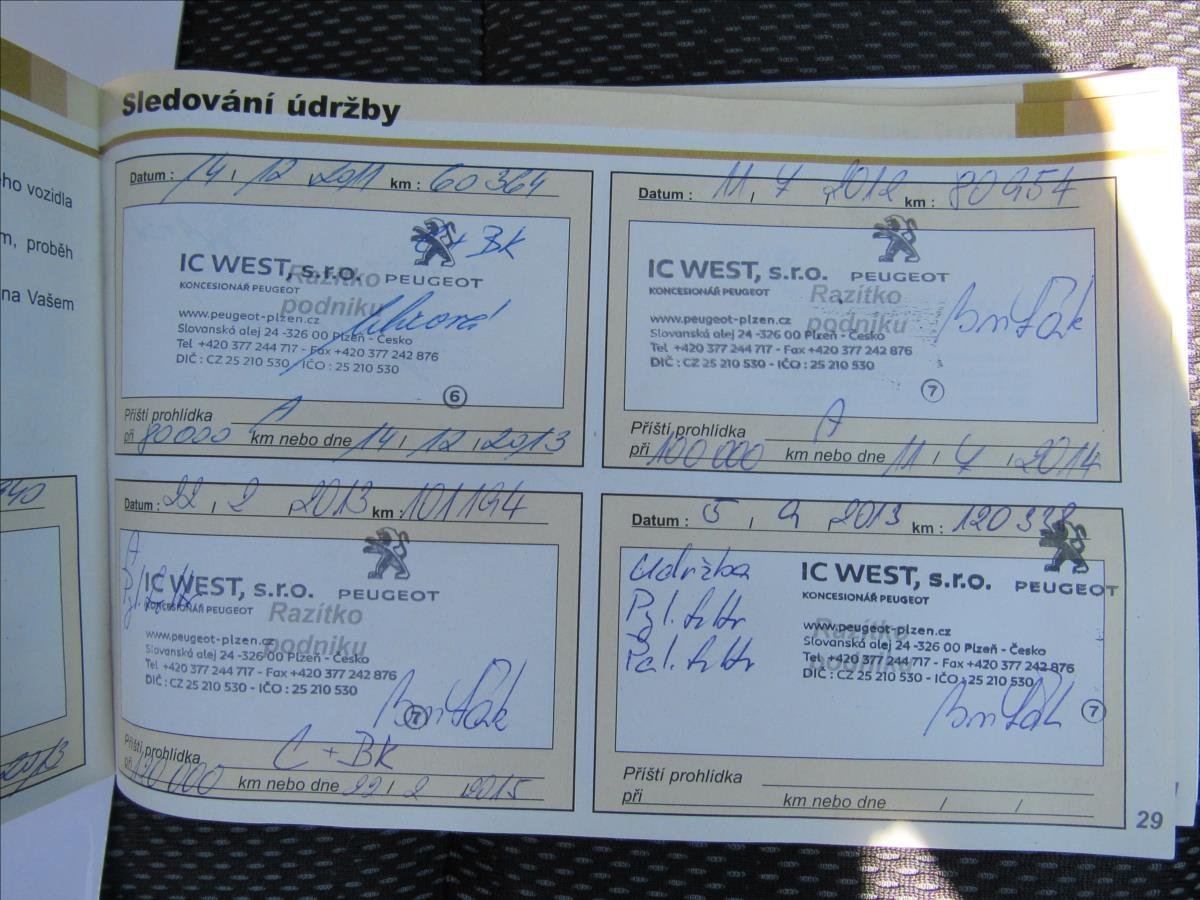 Sledování údržby
ho vozidla
m, proběh
na Vašem
Datum : 14 / 12 2011 km : 60364
C + BK
IC WEST, s.r.o. PEUGEOT
KONCESIONÁŘ PEUGEOT
Razítko
podniku
www.peugeot-plzen.cz
Slovanská alej 24 -326 00 Plzeň - Česko
Tel +420 377 244 717 - Fax +420 377 242 876
DIČ : CZ 25 210 530 - IČO : 25 210 530
6
Příští prohlídka A
při 80000 km nebo dne 14 / 12 / 2013
Datum : 11 / 7 2012 km : 80954
IC WEST, s.r.o. PEUGEOT
KONCESIONÁŘ PEUGEOT
Razítko
podniku
www.peugeot-plzen.cz
Slovanská alej 24 -326 00 Plzeň - Česko
Tel +420 377 244 717 - Fax +420 377 242 876
DIČ : CZ 25 210 530 - IČO : 25 210 530
7
Příští prohlídka A
při 100000 km nebo dne 11 / 7 / 2014
Datum : 22 / 2 2013 km : 101194
A
IC WEST, s.r.o. PEUGEOT
KONCESIONÁŘ PEUGEOT
Razítko
podniku
www.peugeot-plzen.cz
Slovanská alej 24 -326 00 Plzeň - Česko
Tel +420 377 244 717 - Fax +420 377 242 876
DIČ : CZ 25 210 530 - IČO : 25 210 530
7
Příští prohlídka C + BK
při 120000 km nebo dne 22 / 2 2015
Datum : 5 / 9 2013 km : 120338
Údržba
Pyl. filtr
Pal. filtr
IC WEST, s.r.o. PEUGEOT
KONCESIONÁŘ PEUGEOT
Razítko
podniku
www.peugeot-plzen.cz
Slovanská alej 24 -326 00 Plzeň - Česko
Tel +420 377 244 717 - Fax +420 377 242 876
DIČ : CZ 25 210 530 - IČO : 25 210 530
7
Příští prohlídka
při km nebo dne / /
29